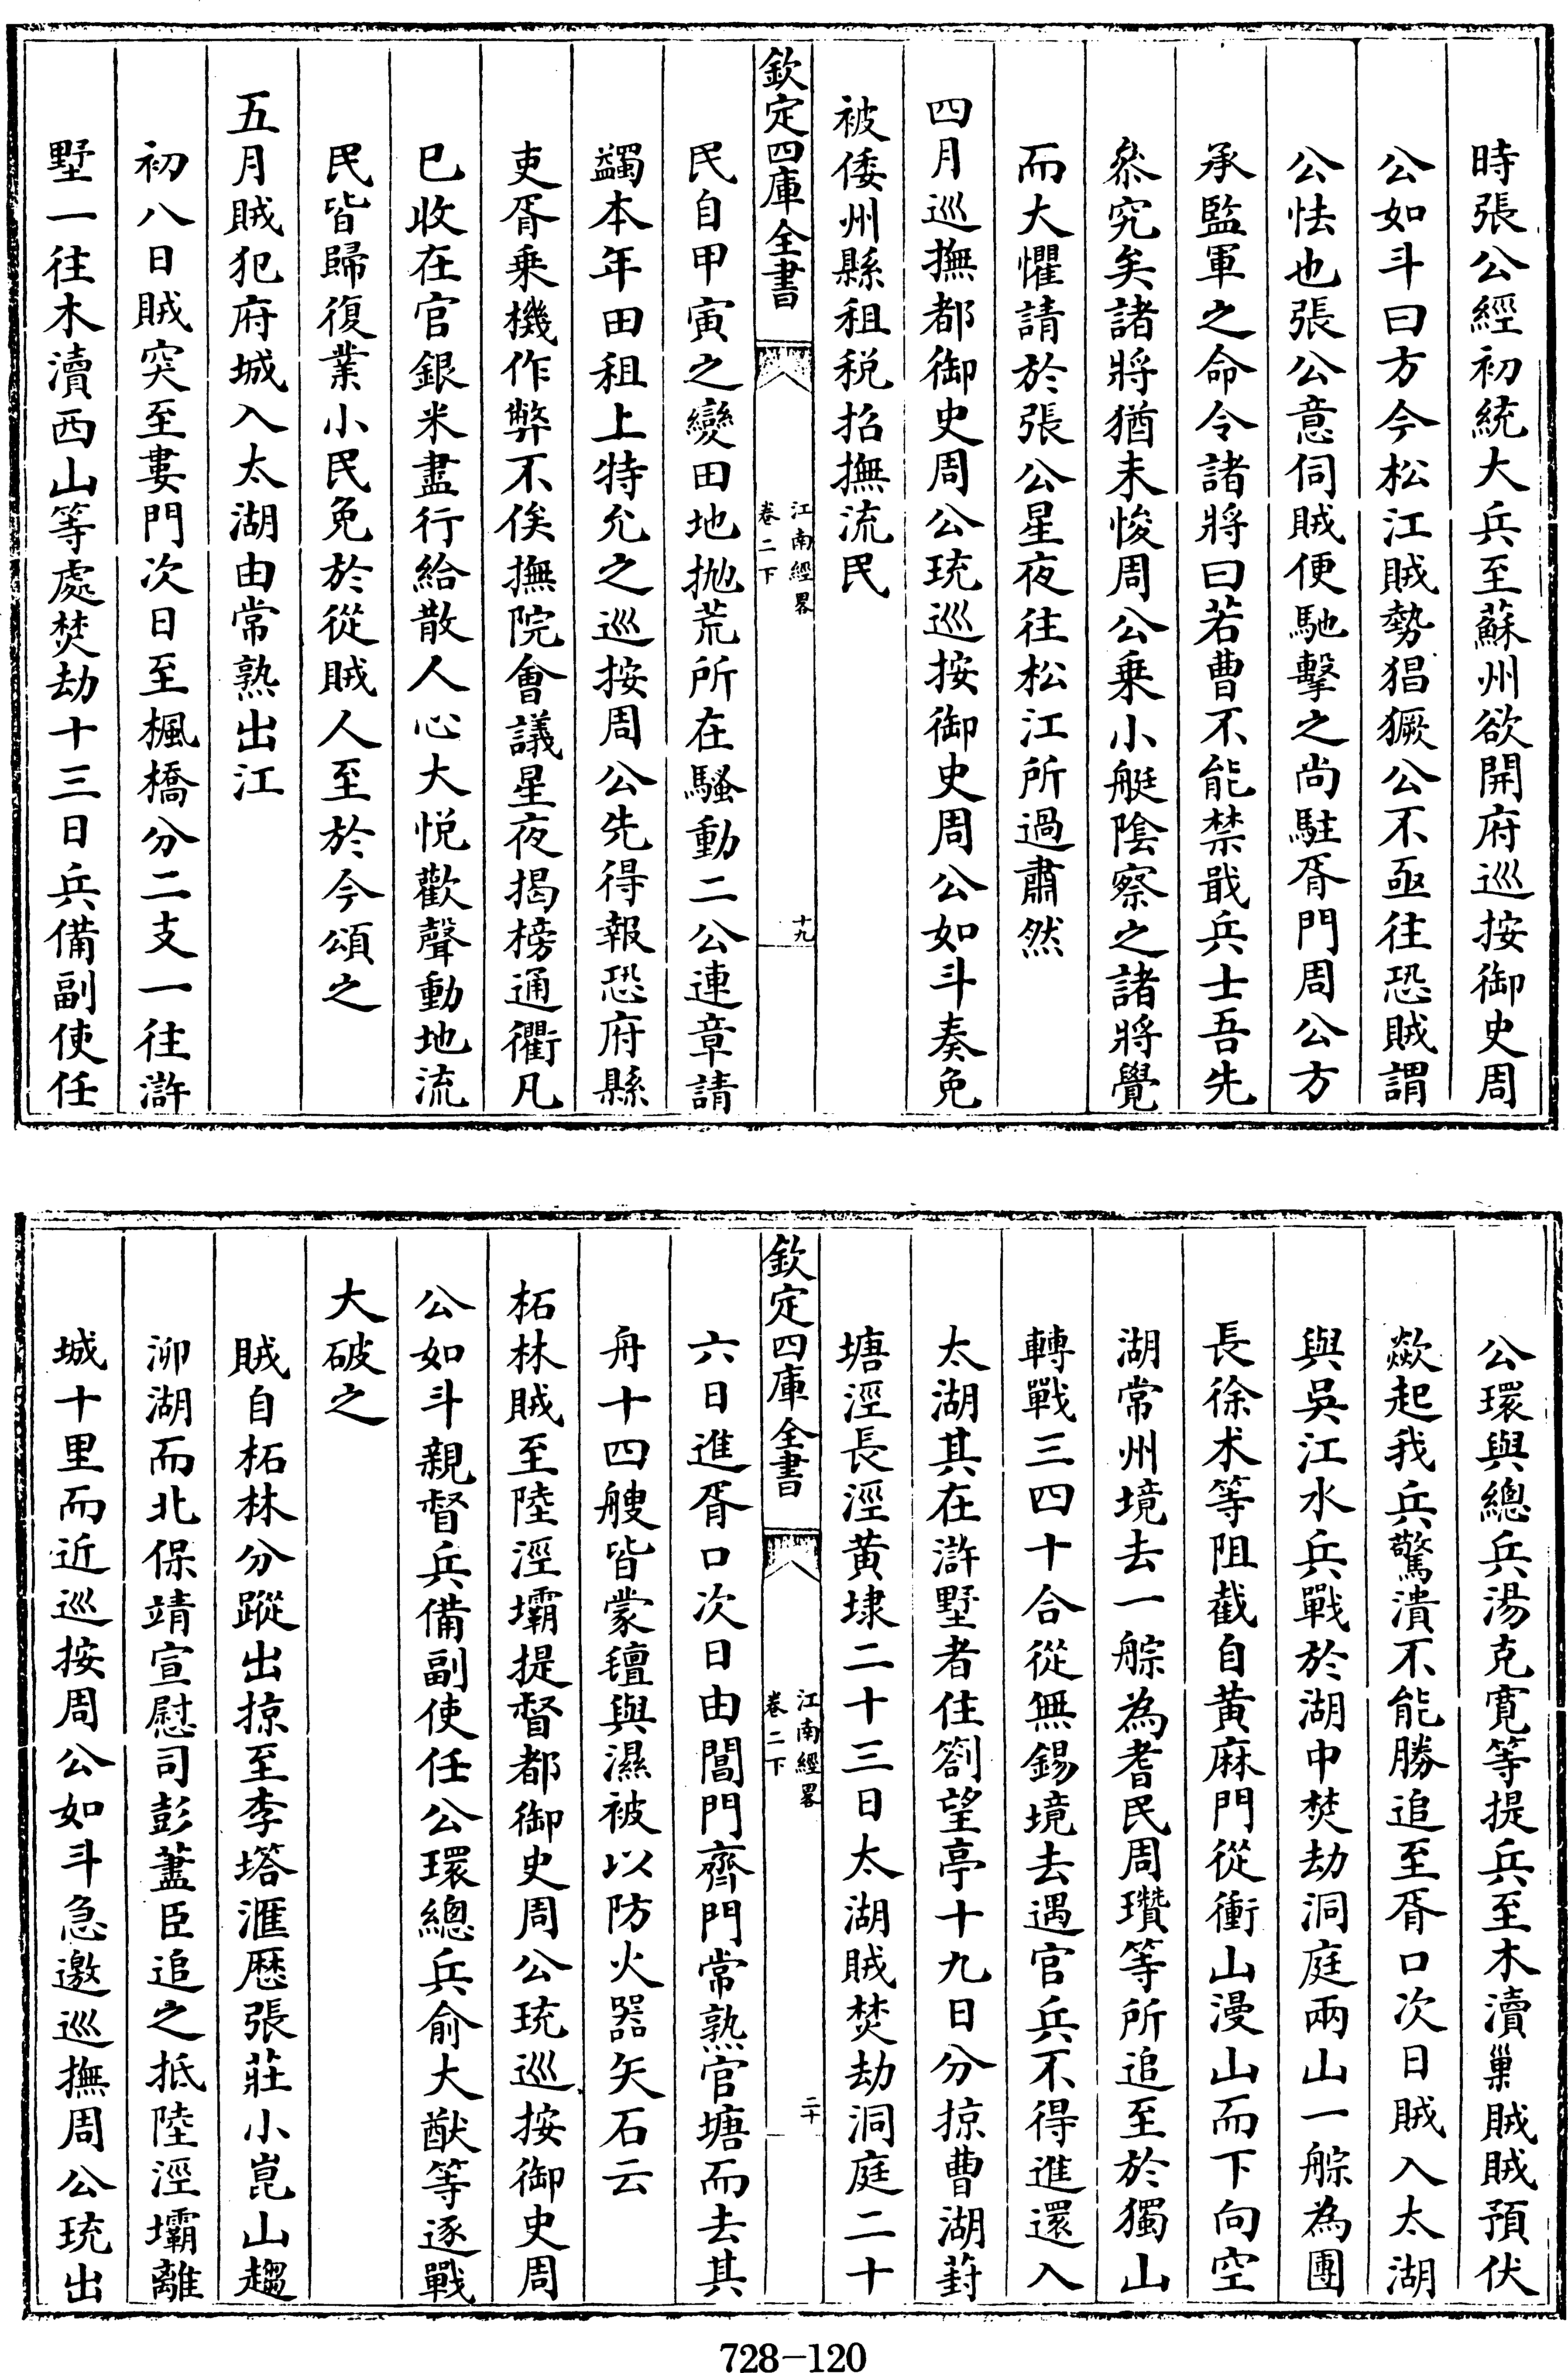 時張公經初統大兵至蘇州欲開府巡按御史周
公如斗曰方今松江賊勢猖獗公不亟往恐賊謂
公怯也張公意伺賊便馳擊之尚駐胥門周公方
承監軍之命令諸將曰若曹不能禁戢兵士吾先
叅究矣諸將猶未悛周公乗小艇隂察之諸將覺
而大懼請於張公星夜往松江所過肅然
四月巡撫都御史周公珫巡按御史周公如斗奏免
被倭州縣租税招撫流民
欽定四庫全書
江南經畧
卷二下
十九
民自甲寅之變田地抛荒所在騷動二公連章請
蠲本年田租上特允之巡按周公先得報恐府縣
吏胥乗機作弊不俟撫院會議星夜揭榜通衢凡
已收在官銀米盡行給散人心大悦歡聲動地流
民皆歸復業小民免於從賊人至於今頌之
五月賊犯府城入太湖由常熟出江
初八日賊突至婁門次日至楓橋分二支一往滸
墅一往木瀆西山等處焚劫十三日兵備副使任
公環與總兵湯克寛等提兵至木瀆巢賊賊預伏
歘起我兵驚潰不能勝追至胥口次日賊入太湖
與吳江水兵戰於湖中焚劫洞庭兩山一䑸為團
長徐术等阻截自黄麻門從衝山漫山而下向空
湖常州境去一䑸為耆民周瓚等所追至於獨山
轉戰三四十合從無錫境去遇官兵不得進還入
太湖其在滸墅者住劄望亭十九日分掠曹湖葑
塘涇長涇黄埭二十三日太湖賊焚劫洞庭二十
欽定四庫全書
江南經畧
卷二下
二十
六日進胥口次日由閶門齊門常熟官塘而去其
舟十四艘皆蒙氊與濕被以防火器矢石云
柘林賊至陸涇壩提督都御史周公珫巡按御史周
公如斗親督兵備副使任公環總兵俞大猷等逐戰
大破之
賊自柘林分蹤出掠至李塔滙歷張莊小崑山趨
泖湖而北保靖宣慰司彭藎臣追之抵陸涇壩離
城十里而近巡按周公如斗急邀巡撫周公珫出
728-120